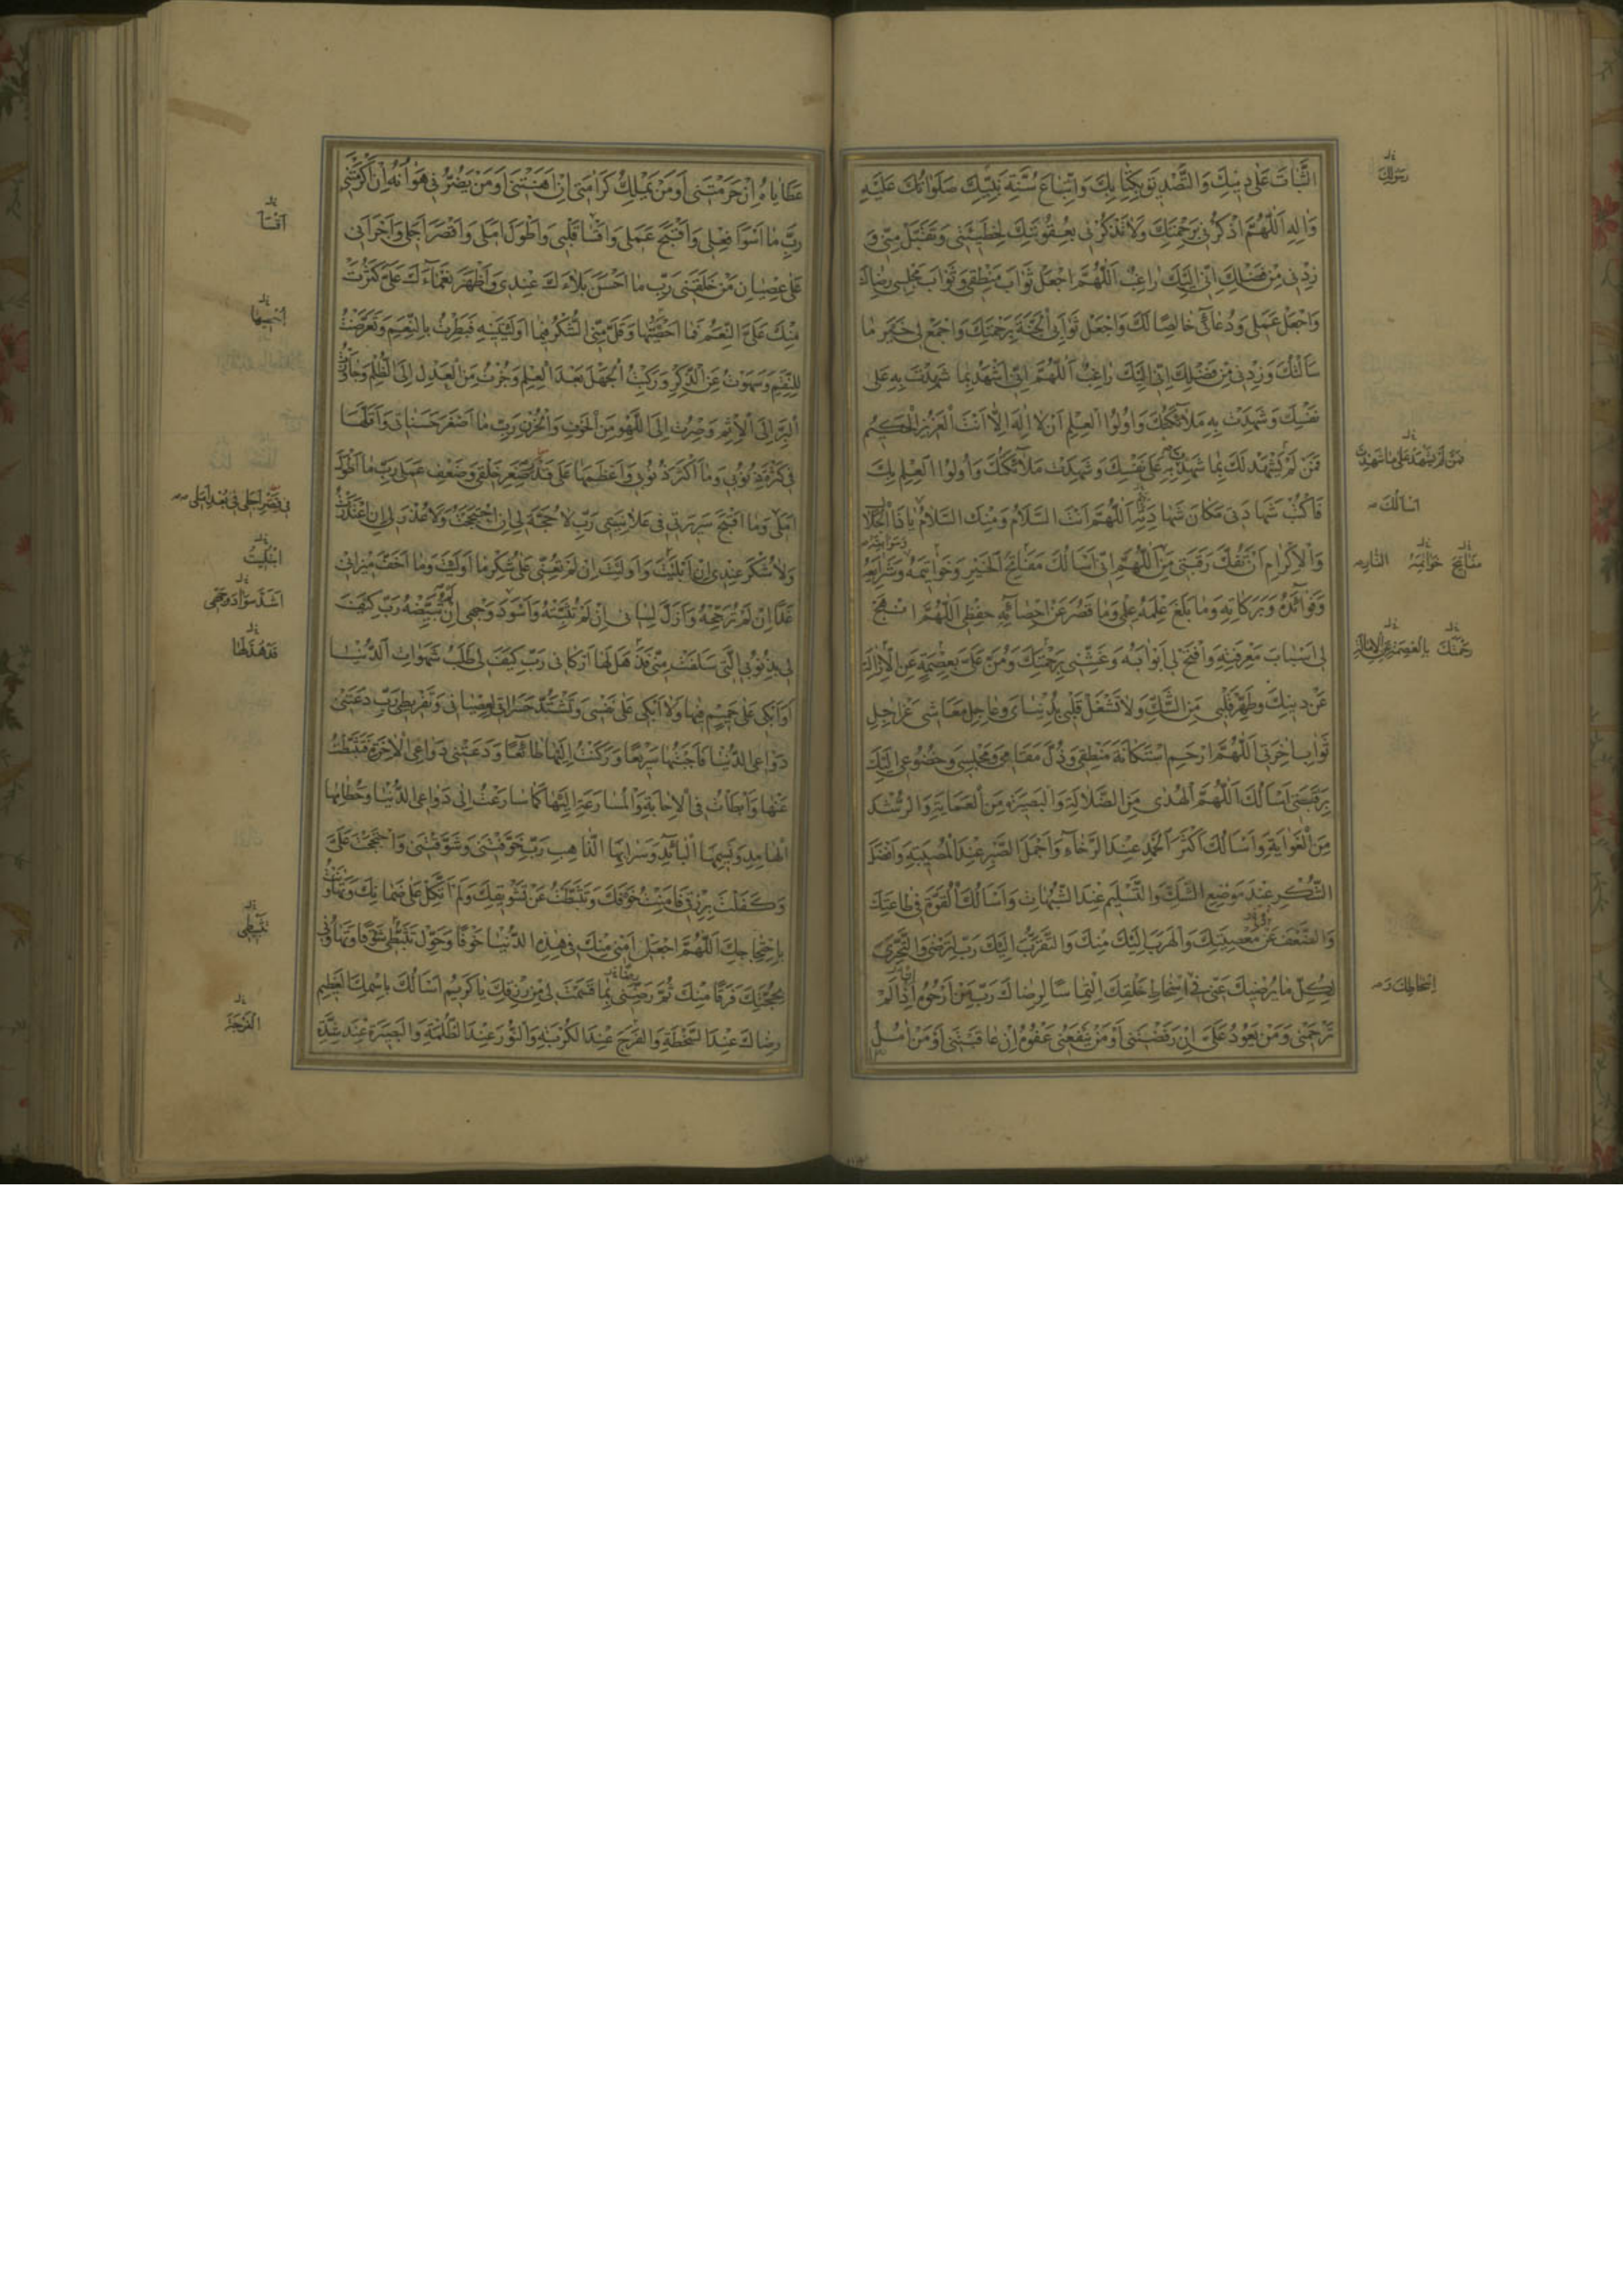 الثَّبَاتَ عَلَى دِينِكَ وَالتَّصْدِيقَ بِكِتَابِكَ وَاتِّبَاعَ سُنَّةِ نَبِيِّكَ صَلَوَاتُكَ عَلَيْهِ
وَالِهِ اَللّٰهُمَّ اذْكُرْنِي بِرَحْمَتِكَ وَلَا تَذْكُرْنِي بِعُقُوبَتِكَ لِخَطِيئَتِي وَتَقَبَّلْ مِنِّي وَ
زِدْنِي مِنْ فَضْلِكَ اِنِّي اِلَيْكَ رَاغِبٌ اَللّٰهُمَّ اجْعَلْ ثَوَابَ مَنْطِقِي وَثَوَابَ مَجْلِسِي رِضَاكَ
وَاجْعَلْ عَمَلِي وَدُعَائِي خَالِصًا لَكَ وَاجْعَلْ ثَوَابِيَ الْجَنَّةَ بِرَحْمَتِكَ وَاجْمَعْ لِي خَيْرَ مَا
سَاَلْتُكَ وَزِدْنِي مِنْ فَضْلِكَ اِنِّي اِلَيْكَ رَاغِبٌ اَللّٰهُمَّ اِنِّي اَشْهَدُ بِمَا شَهِدْتَ بِهِ عَلَى
نَفْسِكَ وَشَهِدَتْ بِهِ مَلَائِكَتُكَ وَاُولُوا الْعِلْمِ اَنْ لَا اِلٰهَ اِلَّا اَنْتَ الْعَزِيزُ الْحَكِيمُ
فَمَنْ لَمْ يَشْهَدْ لَكَ بِمَا شَهِدْتَ بِهِ عَلَى نَفْسِكَ وَشَهِدَتْ مَلَائِكَتُكَ وَاُولُوا الْعِلْمِ بِكَ
فَاكْتُبْ شَهَادَتِي مَكَانَ شَهَادَتِهِ اَللّٰهُمَّ اَنْتَ السَّلَامُ وَمِنْكَ السَّلَامُ يَا ذَا الْجَلَالِ
وَالْاِكْرَامِ اَنْ تَفُكَّ رَقَبَتِي مِنَ اللّٰهُمَّ اِنِّي اَسْاَلُكَ مَفَاتِحَ الْخَيْرِ وَخَوَاتِيمَهُ وَشَرَايِعَهُ
وَفَوَائِدَهُ وَبَرَكَاتِهِ وَمَا بَلَغَ عِلْمَهُ عِلْمِي وَمَا قَصُرَ عَنْ اِحْصَائِهِ حِفْظِي اَللّٰهُمَّ انْهَجْ
لِي اَسْبَابَ مَعْرِفَتِهِ وَافْتَحْ لِي اَبْوَابَهُ وَغَشِّنِي بِرَحْمَتِكَ وَمُنَّ عَلَيَّ بِعِصْمَةٍ عَنِ الْاِزَالَةِ
عَنْ دِينِكَ وَطَهِّرْ قَلْبِي مِنَ الشَّكِّ وَلَا تَشْغَلْ قَلْبِي بِدُنْيَايَ وَعَاجِلِ مَعَاشِي عَنْ اجِلِ
ثَوَابِ اخِرَتِي اَللّٰهُمَّ ارْحَمِ اسْتِكَانَةَ مَنْطِقِي وَذُلَّ مَقَامِي وَمَجْلِسِي وَخُضُوعِي اِلَيْكَ
بِرَقَبَتِي اَسْاَلُكَ اَللّٰهُمَّ الْهُدَى مِنَ الضَّلَالَةِ وَالْبَصِيرَةَ مِنَ الْعَمَايَةِ وَالرُّشْدَ
مِنَ الْغَوَايَةِ وَاَسْاَلُكَ اَكْثَرَ الْحَمْدِ عِنْدَ الرَّخَاءِ وَاَجْمَلَ الصَّبْرِ عِنْدَ الْمُصِيبَةِ وَاَفْضَلَ
الشُّكْرِ عِنْدَ مَوْضِعِ الشَّكِّ وَالتَّسْلِيمَ عِنْدَ الشُّبُهَاتِ وَاَسْاَلُكَ الْقُوَّةَ فِي طَاعَتِكَ
وَالضَّعْفَ عَنْ مَعْصِيَتِكَ وَالْهَرَبَ اِلَيْكَ مِنْكَ وَالتَّقَرُّبَ اِلَيْكَ رَبِّ لِتَرْضَى وَالتَّحَرِّيَ
لِكُلِّ مَا يُرْضِيكَ عَنِّي فِي اِسْخَاطِ خَلْقِكَ اِلْتِمَاسًا لِرِضَاكَ رَبِّ مَنْ اَرْجُوهُ اِذَا لَمْ
تَرْحَمْنِي وَمَنْ يَعُودُ عَلَيَّ اِنْ رَفَضْتَنِي اَوْ مَنْ يَنْفَعُنِي عَفْوُهُ اِنْ عَاقَبْتَنِي اَوْ مَنْ امُلُ
رَسُولِكَ
فَمَنْ لَمْ يَشْهَدْ عَلَى مَا شَهِدْتَ
اَسْاَلُكَ
مَفَاتِيحَ خَوَاتِمَهُ النَّارِ
رَحْمَتَكَ
اِسْخَاطِكَ
عَطَايَاهُ اِنْ حَرَمْتَنِي اَوْ مَنْ يَمْلِكُ كَرَامَتِي اِنْ اَهَنْتَنِي اَوْ مَنْ يَضُرُّنِي هَوَانُهُ اِنْ اَكْرَمْتَنِي
رَبِّ مَا اَسْوَاَ فِعْلِي وَاَقْبَحَ عَمَلِي وَاَقْسَا قَلْبِي وَاَطْوَلَ اَمَلِي وَاَقْصَرَ اَجَلِي وَاَجْرَاَنِي
عَلَى عِصْيَانِ مَنْ خَلَقَنِي رَبِّ مَا اَحْسَنَ بَلَاءَكَ عِنْدِي وَاَظْهَرَ نَعْمَاءَكَ عَلَيَّ كَثُرَتْ
مِنْكَ عَلَيَّ النِّعَمُ فَمَا اُحْصِيهَا وَقَلَّ مِنِّي الشُّكْرُ فِيمَا اَوْلَيْتَنِيهِ فَبَطِرْتُ بِالنِّعَمِ وَتَعَرَّضْتُ
لِلنِّقَمِ وَسَهَوْتُ عَنِ الذِّكْرِ وَرَكِبْتُ الْجَهْلَ بَعْدَ الْعِلْمِ وَجُزْتُ مِنَ الْعَدْلِ اِلَى الظُّلْمِ وَجَاوَزْتُ
الْبِرَّ اِلَى الْاِثْمِ وَصِرْتُ اِلَى اللَّهْوِ مِنَ الْخَوْفِ وَالْحُزْنِ رَبِّ مَا اَصْغَرَ حَسَنَاتِي وَاَقَلَّهَا
فِي كَثْرَةِ ذُنُوبِي وَمَا اَكْثَرَ ذُنُوبِي وَاَعْظَمَهَا عَلَى قَدْرِ صِغَرِ خَلْقِي وَضَعْفِ عَمَلِي رَبِّ مَا اَطْوَلَ
اَمَلِي وَمَا اَقْبَحَ سَرِيرَتِي فِي عَلَانِيَتِي رَبِّ لَا حُجَّةَ لِي اِنِ احْتَجَجْتُ وَلَا عُذْرَ لِي اِنِ اعْتَذَرْتُ
وَلَا شُكْرَ عِنْدِي اِنْ اَبْلَيْتَ وَاَوْلَيْتَ اِنْ لَمْ تُعِنِّي عَلَى شُكْرِ مَا اَوْلَيْتَ وَمَا اَخَفَّ مِيزَانِي
غَدًا اِنْ لَمْ تُرَجِّحْهُ وَاَزَلَّ لِسَانِي اِنْ لَمْ تُثَبِّتْهُ وَاَسْوَدَ وَجْهِي اِنْ لَمْ تُبَيِّضْهُ رَبِّ كَيْفَ
لِي بِذُنُوبِيَ الَّتِي سَلَفَتْ مِنِّي قَدْ هَدَّ لَهَا اَرْكَانِي رَبِّ كَيْفَ لِي طَلَبُ شَهَوَاتِ الدُّنْيَا
اَوْ اَبْكِي عَلَى حَمِيمٍ فِيهَا وَلَا اَبْكِي عَلَى نَفْسِي وَتَشْتَدُّ حَسَرَاتِي لِعِصْيَانِي وَتَفْرِيطِي رَبِّ دَعَتْنِي
دَوَاعِي الدُّنْيَا فَاَجَبْتُهَا سَرِيعًا وَرَكَنْتُ اِلَيْهَا طَائِعًا وَدَعَتْنِي دَوَاعِي الْاخِرَةِ فَتَثَبَّطْتُ
عَنْهَا وَاَبْطَاْتُ فِي الْاِجَابَةِ وَالْمُسَارَعَةِ اِلَيْهَا كَمَا سَارَعْتُ اِلَى دَوَاعِي الدُّنْيَا وَحُطَامِهَا
الْهَامِدِ وَنَسِيمِهَا الْبَائِدِ وَسَرَابِهَا الذَّاهِبِ رَبِّ خَوَّفْتَنِي وَشَوَّقْتَنِي وَاحْتَجَجْتَ عَلَيَّ
وَكَفَلْتَ بِرِزْقِي فَاَمِنْتُ خَوْفَكَ وَتَثَبَّطْتُ عَنْ تَشْوِيقِكَ وَلَمْ اَتَّكِلْ عَلَى ضَمَانِكَ وَتَهَاوَنْتُ
بِاحْتِجَاجِكَ اَللّٰهُمَّ اجْعَلْ اَمْنِي مِنْكَ فِي هٰذِهِ الدُّنْيَا خَوْفًا وَحَوِّلْ تَثَبُّطِي شَوْقًا وَتَهَاوُنِي
بِحُجَّتِكَ فَرَقًا مِنْكَ ثُمَّ رَضِّنِي بِمَا قَسَمْتَ لِي مِنْ رِزْقِكَ يَا كَرِيمُ اَسْاَلُكَ بِاسْمِكَ الْعَظِيمِ
رِضَاكَ عِنْدَ السَّخْطَةِ وَالْفَرَجَ عِنْدَ الْكُرْبَةِ وَالنُّورَ عِنْدَ الظُّلْمَةِ وَالْبَصِيرَةَ عِنْدَ شِدَّةِ
اَقْسَا
اُحْصِيهَا
فِي قِصَرِ اَجَلِي فِي بُعْدِ اَمَلِي
ابْتَلَيْتَ
اَشَدَّ سَوَادَ وَجْهِي
تَثَبُّطِي
الْفُرْجَةَ